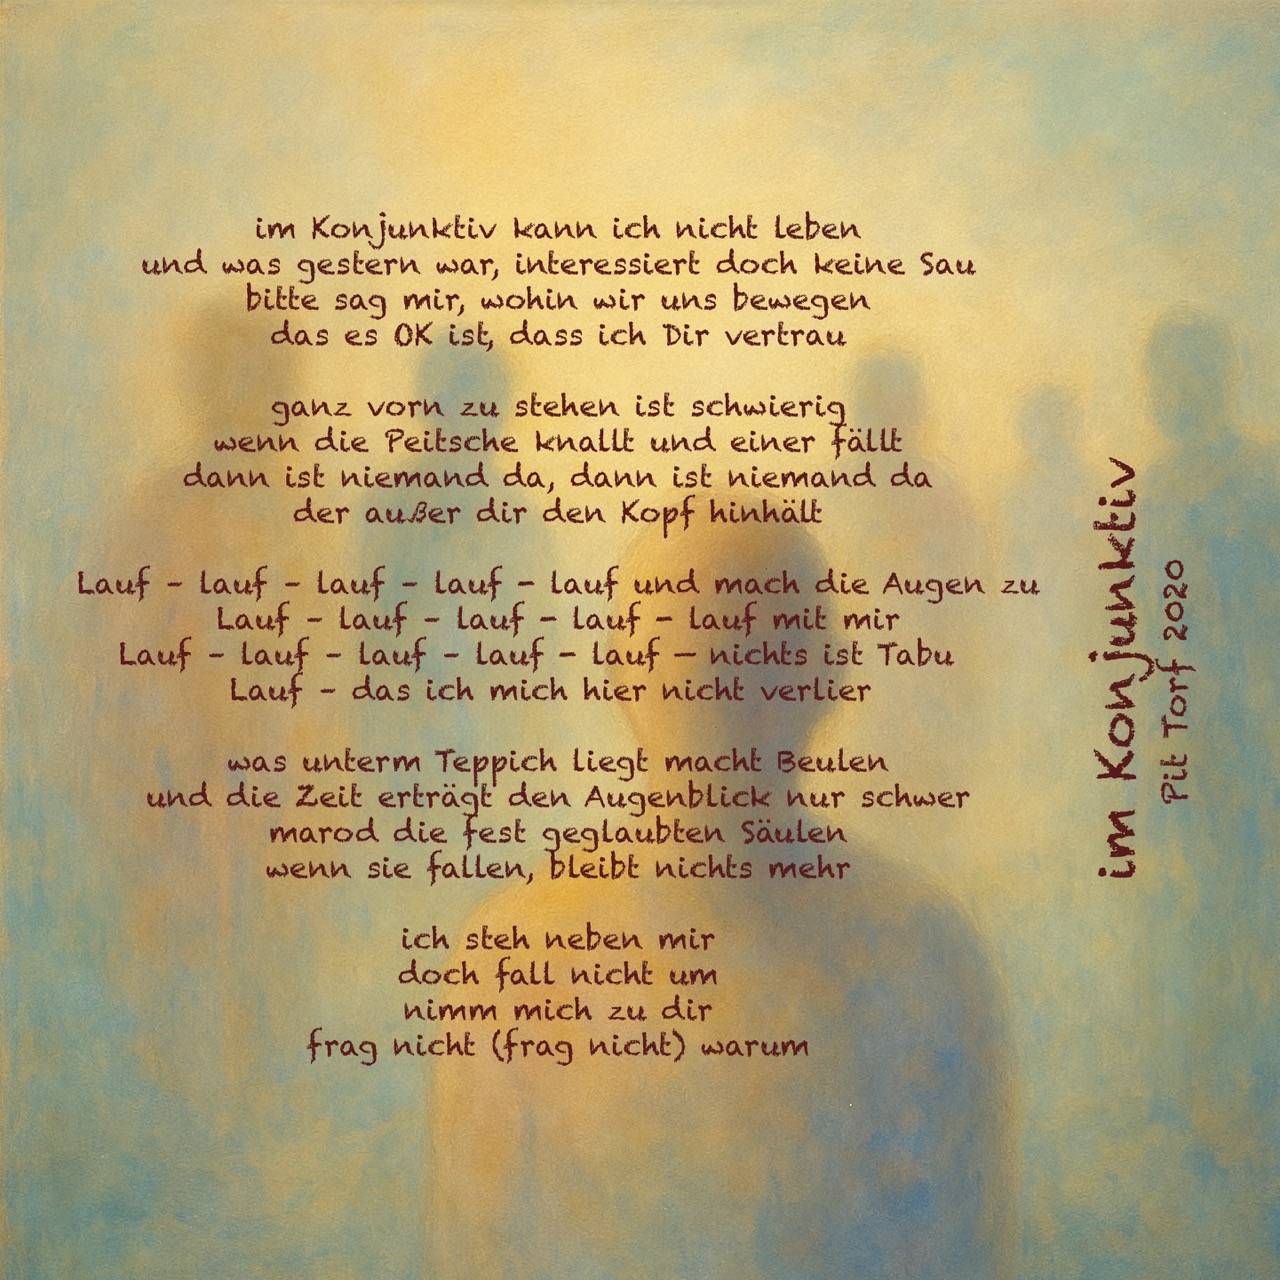 im Konjunktiv kann ich nicht leben
und was gestern war, interessiert doch keine Sau
bitte sag mir, wohin wir uns bewegen
das es OK ist, dass ich Dir vertrau
ganz vorn zu stehen ist schwierig
wenn die Peitsche knallt und einer fällt
dann ist niemand da, dann ist niemand da
der außer dir den Kopf hinhält
Lauf - lauf - lauf - lauf - lauf und mach die Augen zu
Lauf - lauf - lauf - lauf - lauf mit mir
Lauf - lauf - lauf - lauf - lauf – nichts ist Tabu
Lauf - das ich mich hier nicht verlier
was unterm Teppich liegt macht Beulen
und die Zeit erträgt den Augenblick nur schwer
marod die fest geglaubten Säulen
wenn sie fallen, bleibt nichts mehr
ich steh neben mir
doch fall nicht um
nimm mich zu dir
frag nicht (frag nicht) warum
im Konjunktiv
Pit Torf 2020